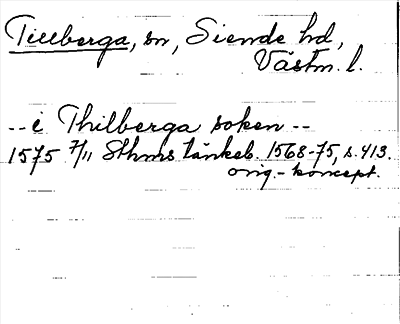 Tillberga, sn, Siende hd,
Västm. l.
-- i Thilberga soken --
1575 7/11 Sthms tänkeb. 1568-75, s. 413.
orig.-koncept.